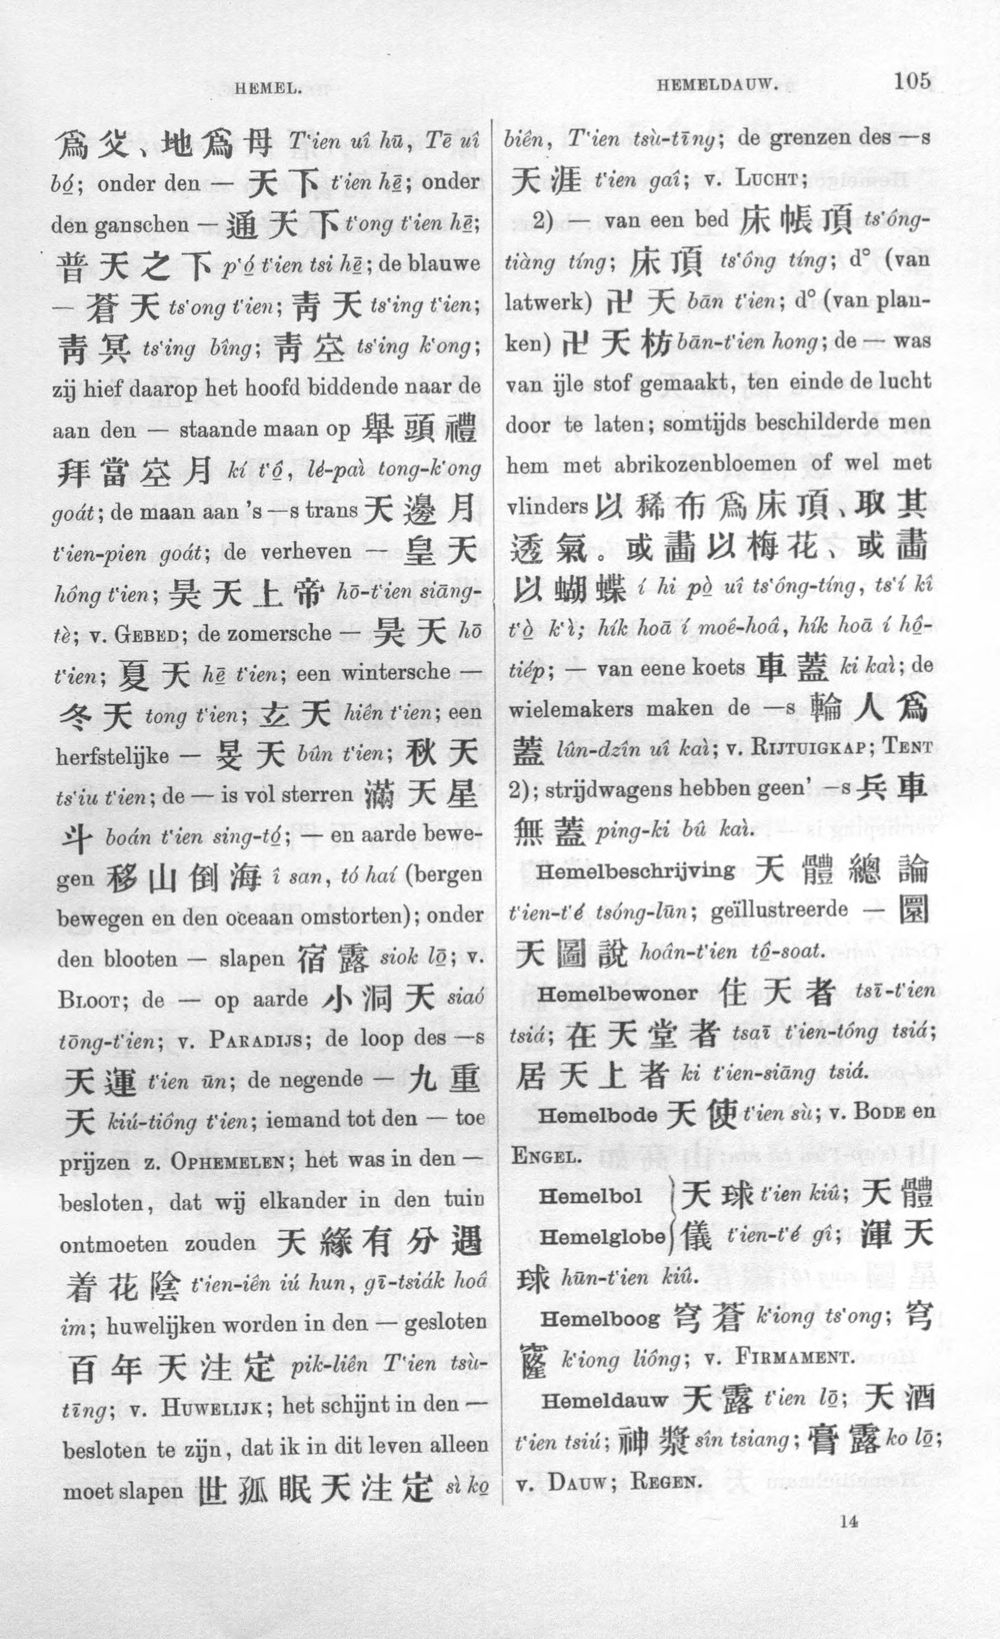 HEMEL.
HEMELDAUW.
105
爲父、地爲母 T'ien uî hū, Tē uî
bó̤; onder den — 天下 t'ien hē̤; onder
den ganschen — 通天下 t'ong t'ien hē̤;
普天之下 p'ó̤ t'ien tsi hē̤; de blauwe
— 蒼天 ts'ong t'ien; 靑天 ts'ing t'ien;
靑冥 ts'ing bîng; 靑空 ts'ing k'ong;
zij hief daarop het hoofd biddende naar de
aan den — staande maan op 舉頭禮
拜當空月 kí t'ô̤, lé-paì tong-k'ong
goát; de maan aan 's —s trans 天邊月
t'ien-pien goát; de verheven — 皇天
hông t'ien; 昊天上帝 hō-t'ien siāng-
tè; v. GEBED; de zomersche — 昊天 hō
t'ien; 夏天 hē̤ t'ien; een wintersche —
冬天 tong t'ien; 玄天 hiên t'ien; een
herfstelijke — 旻天 bûn t'ien; 秋天
ts'iu t'ien; de — is vol sterren 滿天星
斗 boán t'ien sing-tó̤; — en aarde bewe-
gen 移山倒海 î san, tó haí (bergen
bewegen en den oceaan omstorten); onder
den blooten — slapen 宿露 siok lō̤; v.
BLOOT; de — op aarde 小洞天 siaó
tōng-t'ien; v. PARADIJS; de loop des —s
天運 t'ien ūn; de negende — 九重
天 kiú-tiông t'ien; iemand tot den — toe
prijzen z. OPHEMELEN; het was in den —
besloten, dat wij elkander in den tuin
ontmoeten zouden 天緣有分遇
着花陰 t'ien-iên iú hun, gī-tsiák hoâ
im; huwelijken worden in den — gesloten
百年天注定 pik-liên T'ien tsù-
tīng; v. HUWELIJK; het schijnt in den —
besloten te zijn, dat ik in dit leven alleen
moet slapen 世孤眠天注定 sì ko̤
biên, T'ien tsù-tīng; de grenzen des —s
天涯 t'ien gaî; v. LUCHT;
2) — van een bed 床帳頂 ts'ông-
tiàng tíng; 床頂 ts'ông tíng; d° (van
latwerk) 卍天 bān t'ien; d° (van plan-
ken) 卍天枋 bān-t'ien hong; de — was
van ijle stof gemaakt, ten einde de lucht
door te laten; somtijds beschilderde men
hem met abrikozenbloemen of wel met
vlinders 以稀布爲床頂、取其
透氣。或畵以梅花、或畵
以蝴蝶 í hi pò̤ uî ts'ông-tíng, ts'í kî
t'ò̤ k'ì; hík hoā í moê-hoâ, hík hoā í hô̤-
tiép; — van eene koets 車蓋 ki kaì; de
wielemakers maken de —s 輪人爲
蓋 lûn-dzîn uî kaì; v. RIJTUIGKAP; TENT
2); strijdwagens hebben geen' —s 兵車
無蓋 ping-ki bû kaì.
Hemelbeschrijving 天體總論
t'ien-t'é tsóng-lūn; geïllustreerde — 圜
天圖說 hoân-t'ien tô̤-soat.
Hemelbewoner 住天者 tsī-t'ien
tsiá; 在天堂者 tsaī t'ien-tông tsiá;
居天上者 ki t'ien-siāng tsiá.
Hemelbode 天使 t'ien sù; v. BODE en
ENGEL.
Hemelbol } 天球 t'ien kiû; 天體
Hemelglobe } 儀 t'ien-t'é gî; 渾天
球 hūn-t'ien kiû.
Hemelboog 穹蒼 k'iong ts'ong; 穹
窿 k'iong liông; v. FIRMAMENT.
Hemeldauw 天露 t'ien lō̤; 天酒
t'ien tsiú; 神漿 sîn tsiang; 膏露 ko lō̤;
v. DAUW; REGEN.
14